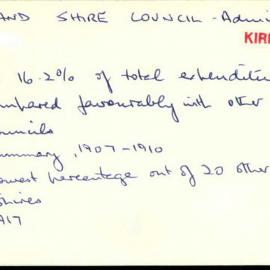 AND SHIRE COUNCIL - Admi
KIR
16.2% of total expenditu
mpared favourably with other
ouncils
ummary, 1907-1910
owest percentage out of 20 other
shires
A17